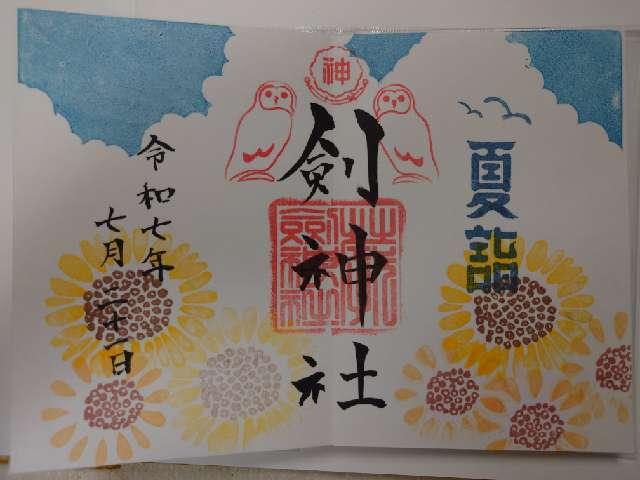 夏詣
神
劍神社
令和七年
七月二十一日